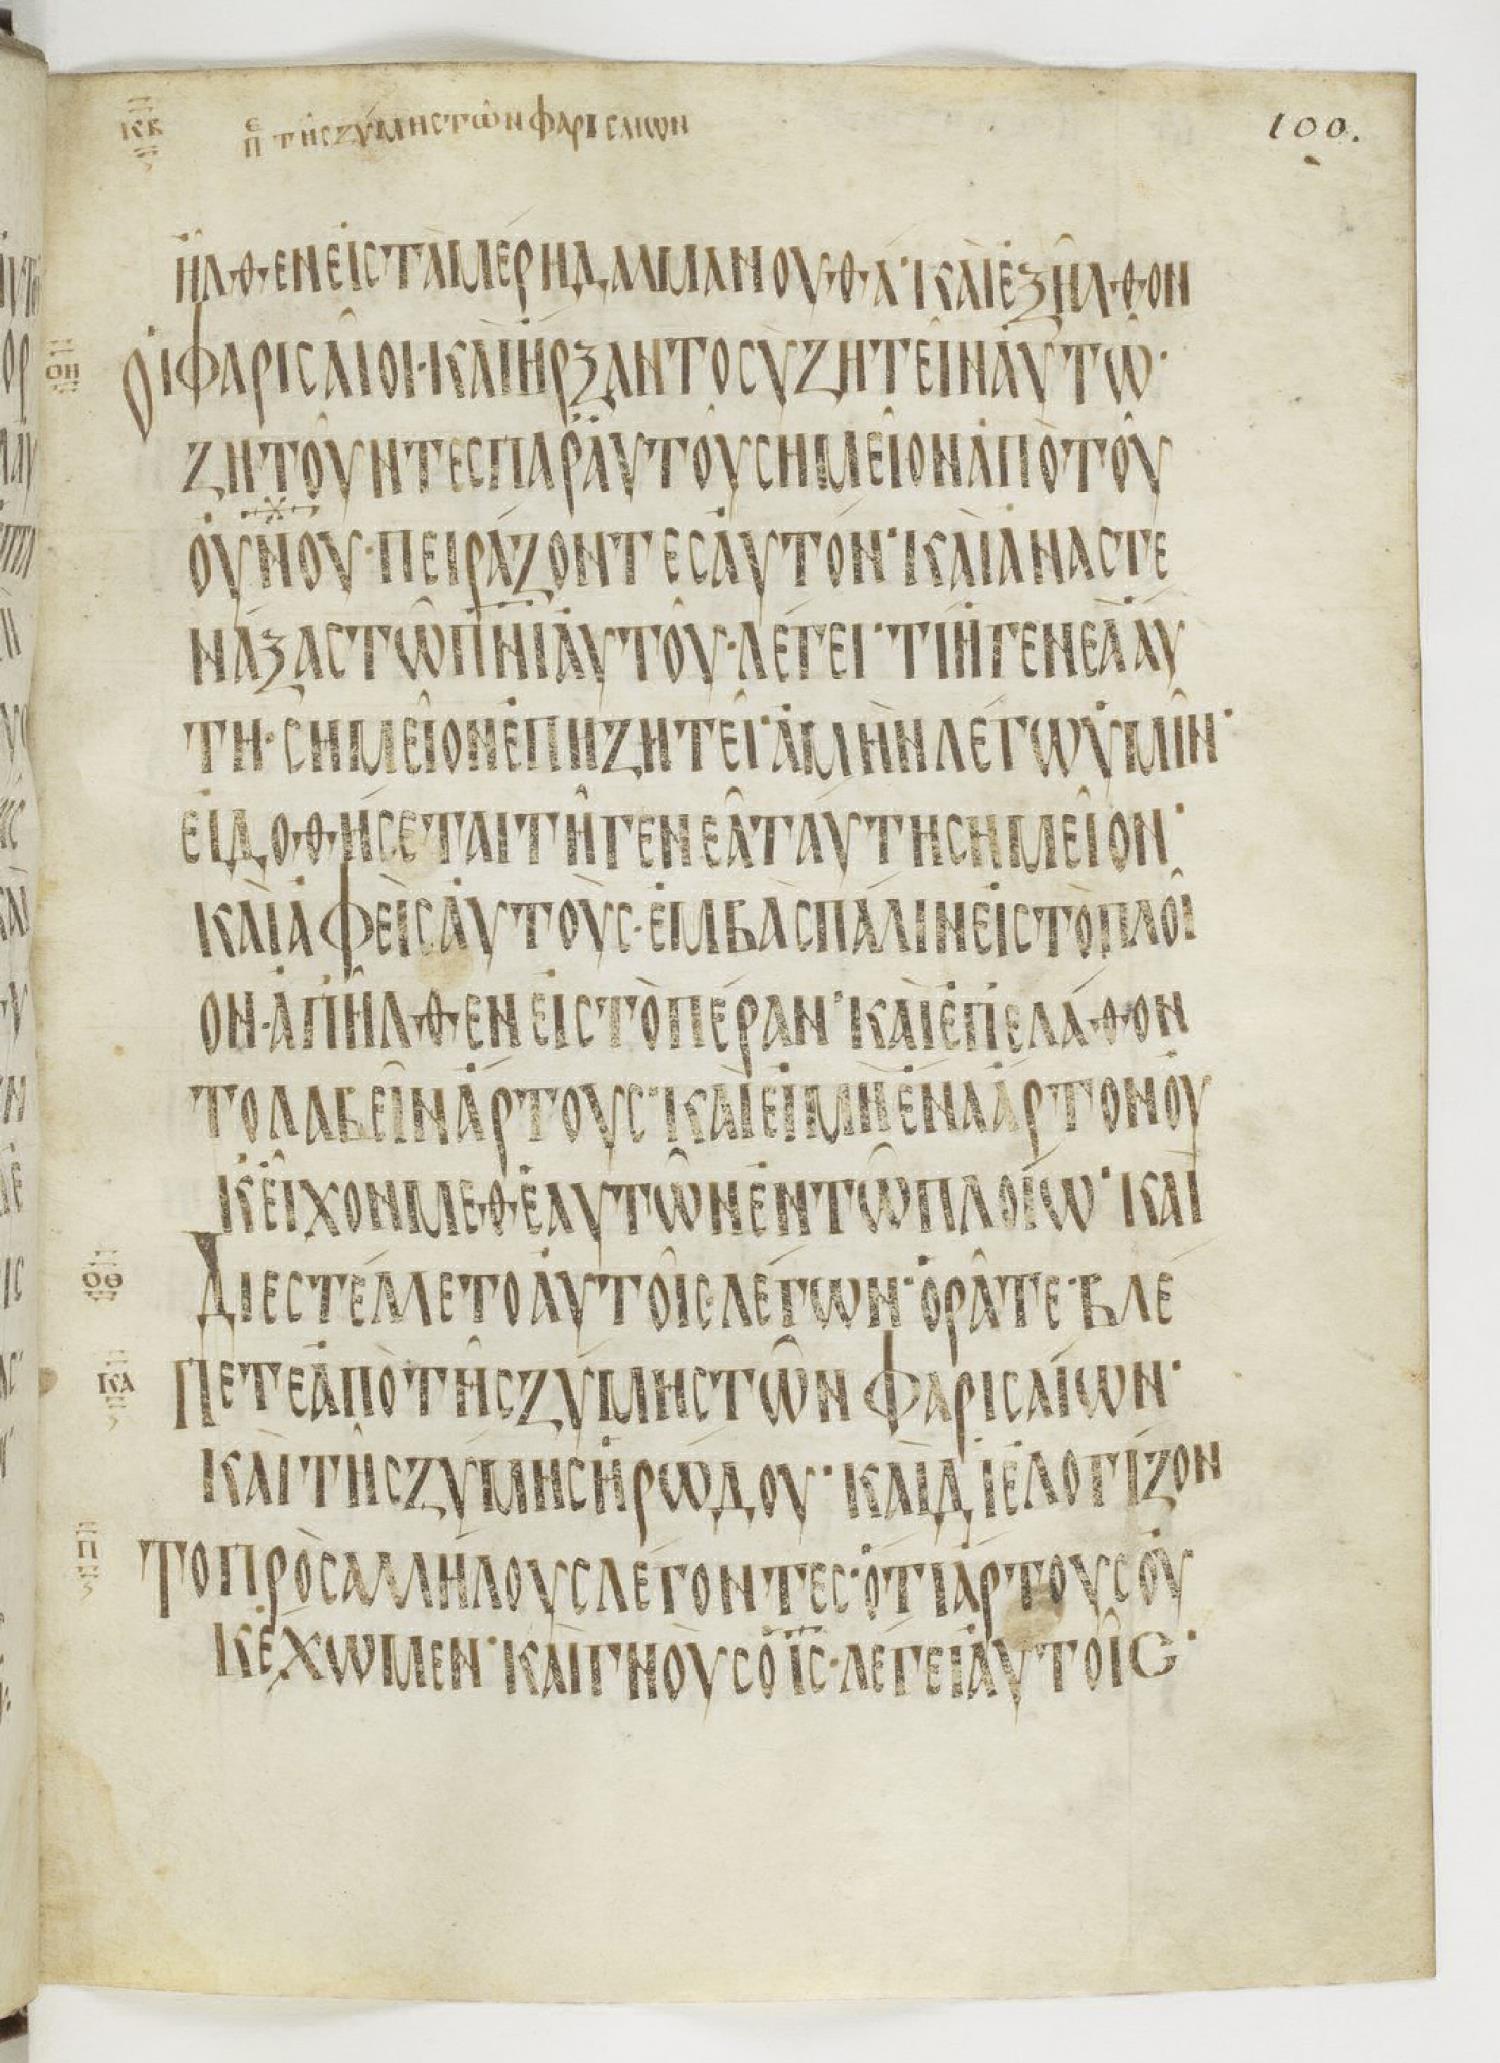 ΚΒ Π͑ε ΤΗ̂ϹΖΎΜΗϹΤΩ̂ΝΦΑΡΙϹΑΙΩΝ
100.
ἮΛΘΕΝΕἸϹΤᾺΜΈΡΗΔΑΛΜΑΝΟΥΘΆ· ΚΑῚἘΞΗ̂ΛΘΟΝ
ΟΗ ὉΙΦΑΡΙϹΑΙ͂ΟΙ· ΚΑῚἬΡΞΑΝΤΟϹΥΖΗΤΕΙ͂ΝἈΥΤΩ͂·
ΖΗΤΟΥ͂ΝΤΕϹΠΑΡἈΥΤΟΥ͂ϹΗΜΕΙ͂ΟΝἈΠῸΤΟΥ͂
ὈΥΝΟΥ· ΠΕΙΡΆΖΟΝΤΕϹἈΥΤΌΝ· ΚΑῚἈΝΑϹΤΕ
ΝΆΞΑϹΤΩ͂ΠΝΙἈΥΤΟΥ͂· ΛΈΓΕΙ· ΤΊἩΓΕΝΕᾺἈΥ
ΤΗ· ϹΗΜΕΙ͂ΟΝἘΠΗΖΗΤΕΙ͂· ἈΜῊΝΛΈΓΩὙΜΙ͂Ν·
ΕἸΔΟΘΉϹΕΤΑΙΤΗ͂ΓΕΝΕΑ͂ΤΑΎΤΗϹΗΜΕΙ͂ΟΝ·
ΚΑῚἈΦΕῚϹἈΥΤΟῪϹ· ἘΜΒᾺϹΠΆΛΙΝΕἸϹΤῸΠΛΟΙ͂
ΟΝ· ἈΠΗ͂ΛΘΕΝΕἸϹΤῸΠΈΡΑΝ· ΚΑῚἘΠΕΛΆΘΟΝ
ΤΟΛΑΒΕΙ͂ΝἌΡΤΟΥϹ· ΚΑῚΕἸΜῊἝΝΑἌΡΤΟΝΟΥ̓
Κ̓ΕἾΧΟΝΜΕΘἙΑΥΤΩ͂ΝἘΝΤΩ͂ΠΛΟΊΩ· ΚΑῚ
ΟΘ ΔΙΕϹΤΈΛΛΕΤΟἈΥΤΟΙ͂ϹΛΈΓΩΝ· ὉΡΑ͂ΤΕ· ΒΛΈ
ΚΑ ΠΕΤΕἈΠῸΤΗ͂ϹΖΎΜΗϹΤΩ͂ΝΦΑΡΙϹΑΊΩΝ·
ΚΑῚΤΗ͂ϹΖΎΜΗϹἩΡΏΔΟΥ· ΚΑῚΔΙΕΛΟΓΊΖΟΝ
Π ΤΟΠΡῸϹἈΛΛΉΛΟΥϹΛΈΓΟΝΤΕϹ· ὍΤΙἌΡΤΟΥϹΟΥ̓
Κ̓ἜΧΩΜΕΝ· ΚΑῚΓΝΟῪϹὉΙϹ· ΛΈΓΕΙἈΥΤΟΙ͂Ϲ·